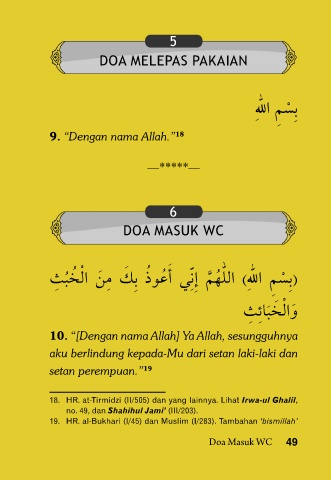 5
DOA MELEPAS PAKAIAN
بِسْمِ اللهِ
9. “Dengan nama Allah.”18
—*****—
6
DOA MASUK WC
(بِسْمِ اللهِ) اللَّهُمَّ إِنِّي أَعُوذُ بِكَ مِنَ الْخُبُثِ
وَالْخَبَائِثِ
10. “[Dengan nama Allah] Ya Allah, sesungguhnya
aku berlindung kepada-Mu dari setan laki-laki dan
setan perempuan.”19
18. HR. at-Tirmidzi (II/505) dan yang lainnya. Lihat Irwa-ul Ghalil,
no. 49, dan Shahihul Jami’ (III/203).
19. HR. al-Bukhari (I/45) dan Muslim (I/283). Tambahan ‘bismillah’
Doa Masuk WC 49